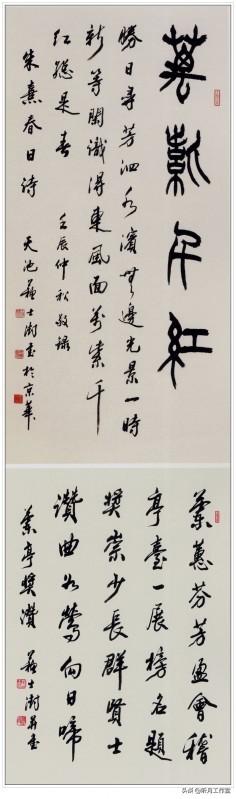 萬紫千紅
勝日尋芳泗水濱無邊光景一時
新等閑識得東風面萬紫千
紅總是春 壬辰仲秋敬録
朱熹春日詩 天池蘇士澍書於京華
蘭蕙芬芳盈會稽
亭臺一展榜名題
獎崇少長群賢士
讚曲如鶯向日啼
蘭亭獎讚 蘇士澍并書
头条@昕月工作室